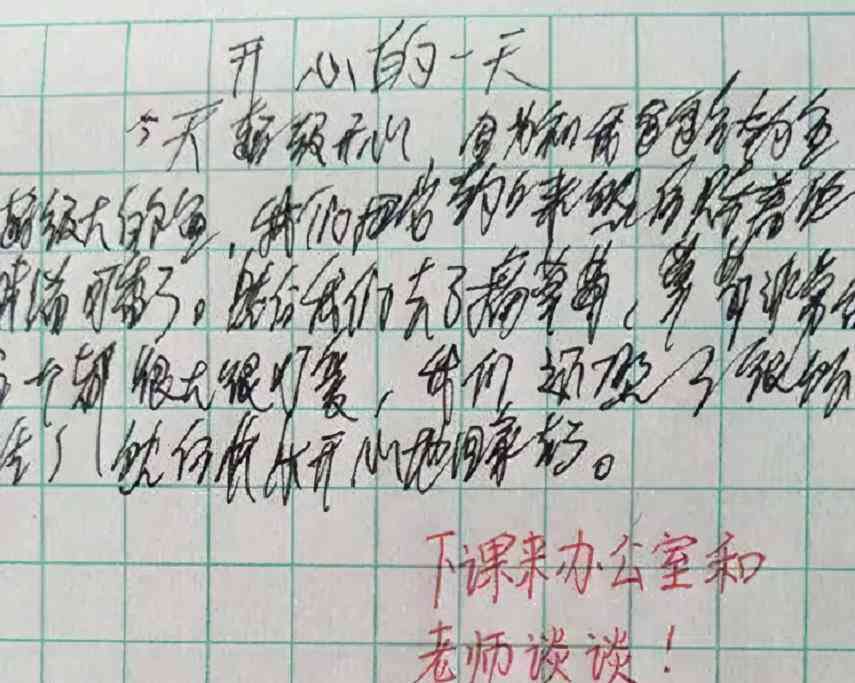 开心的一天
今天超级开心,因为和我爸爸去钓鱼
超级大的鱼,我们把钓来的
可了。然后我们去了摘草莓,草莓非常
个都很大很可爱,我们了很多
了,然后我们开心地回家了。
下课来办公室和
老师谈谈!